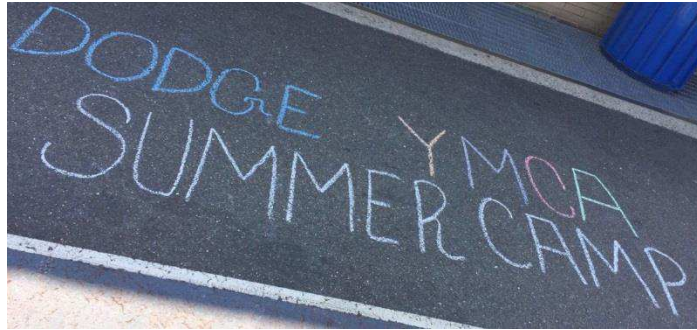 DODGE YMCA
SUMMER CAMP